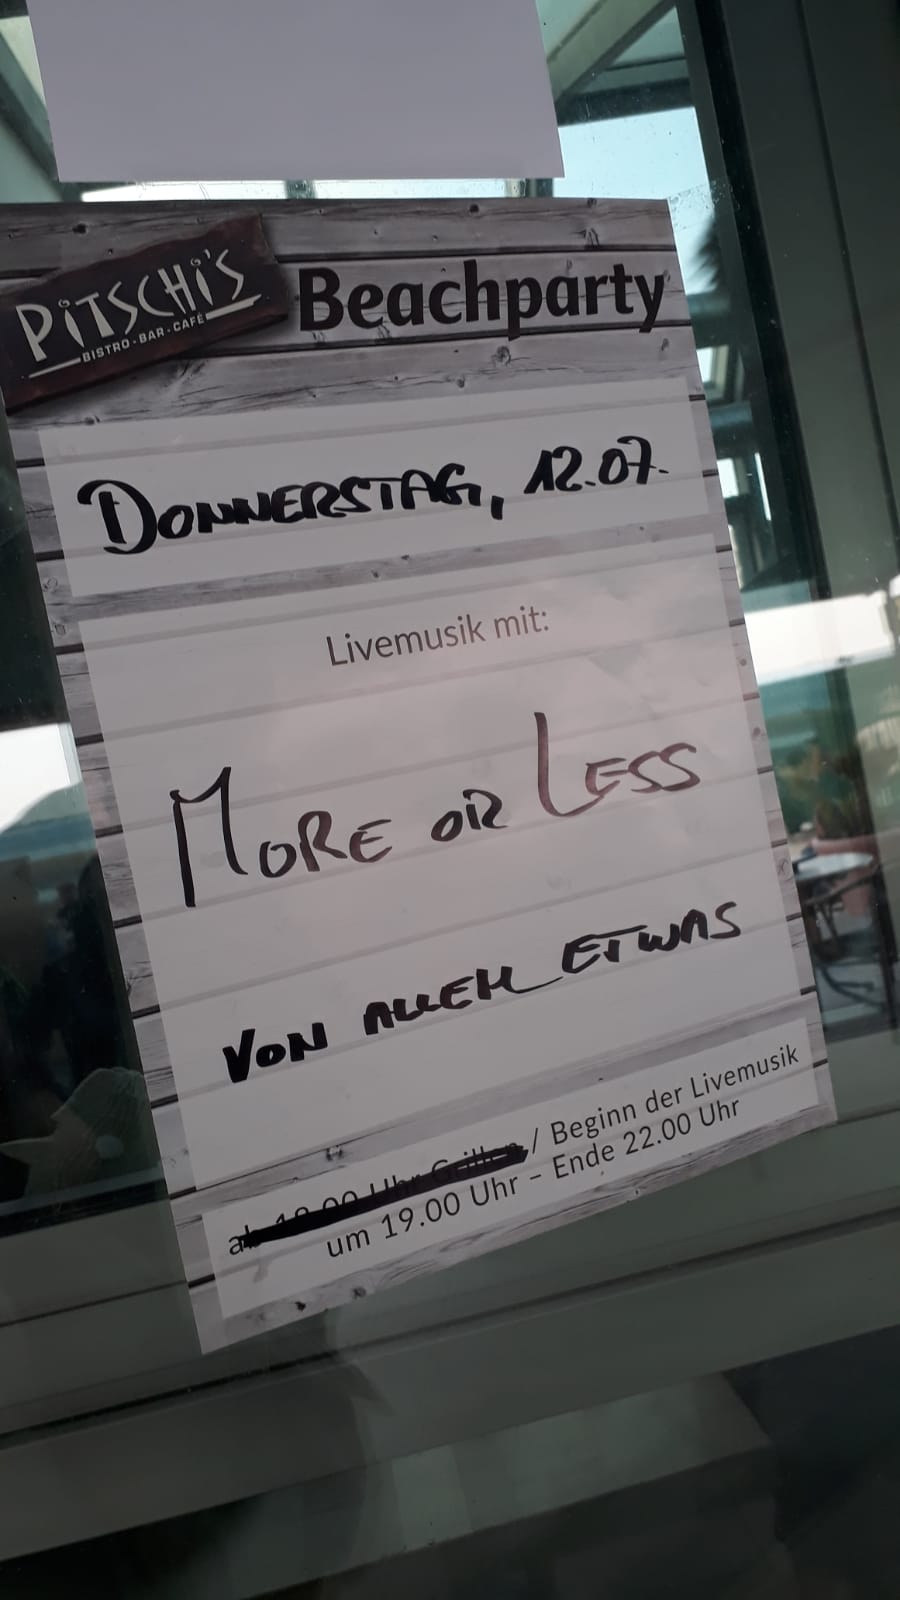 PITSCHI'S
BISTRO·BAR·CAFÉ
Beachparty
DONNERSTAG, 12.07.
Livemusik mit:
MORE OR LESS
VON ALLEM ETWAS
ab 18.00 Uhr Grillen / Beginn der Livemusik
um 19.00 Uhr – Ende 22.00 Uhr